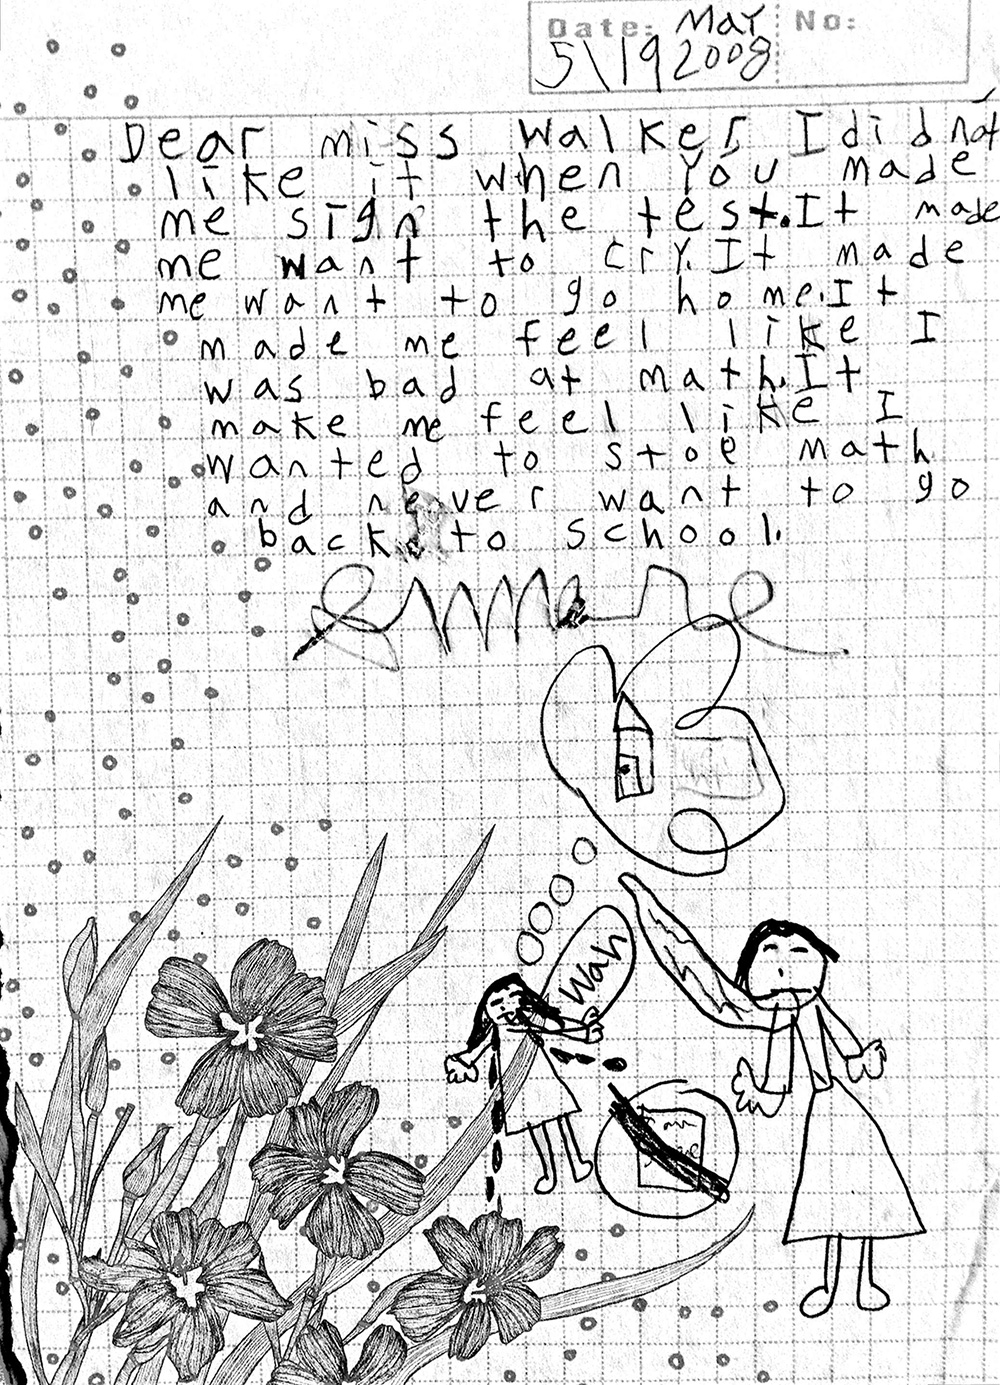 Date: May No:
5\19 2008
Dear miss walker, I did not
like it when you made
me sign the test. It made
me want to cry. It made
me want to go home. It
made me feel like I
was bad at math. It
make me feel like I
wanted to stoe math
and never want to go
back to school.
Wah